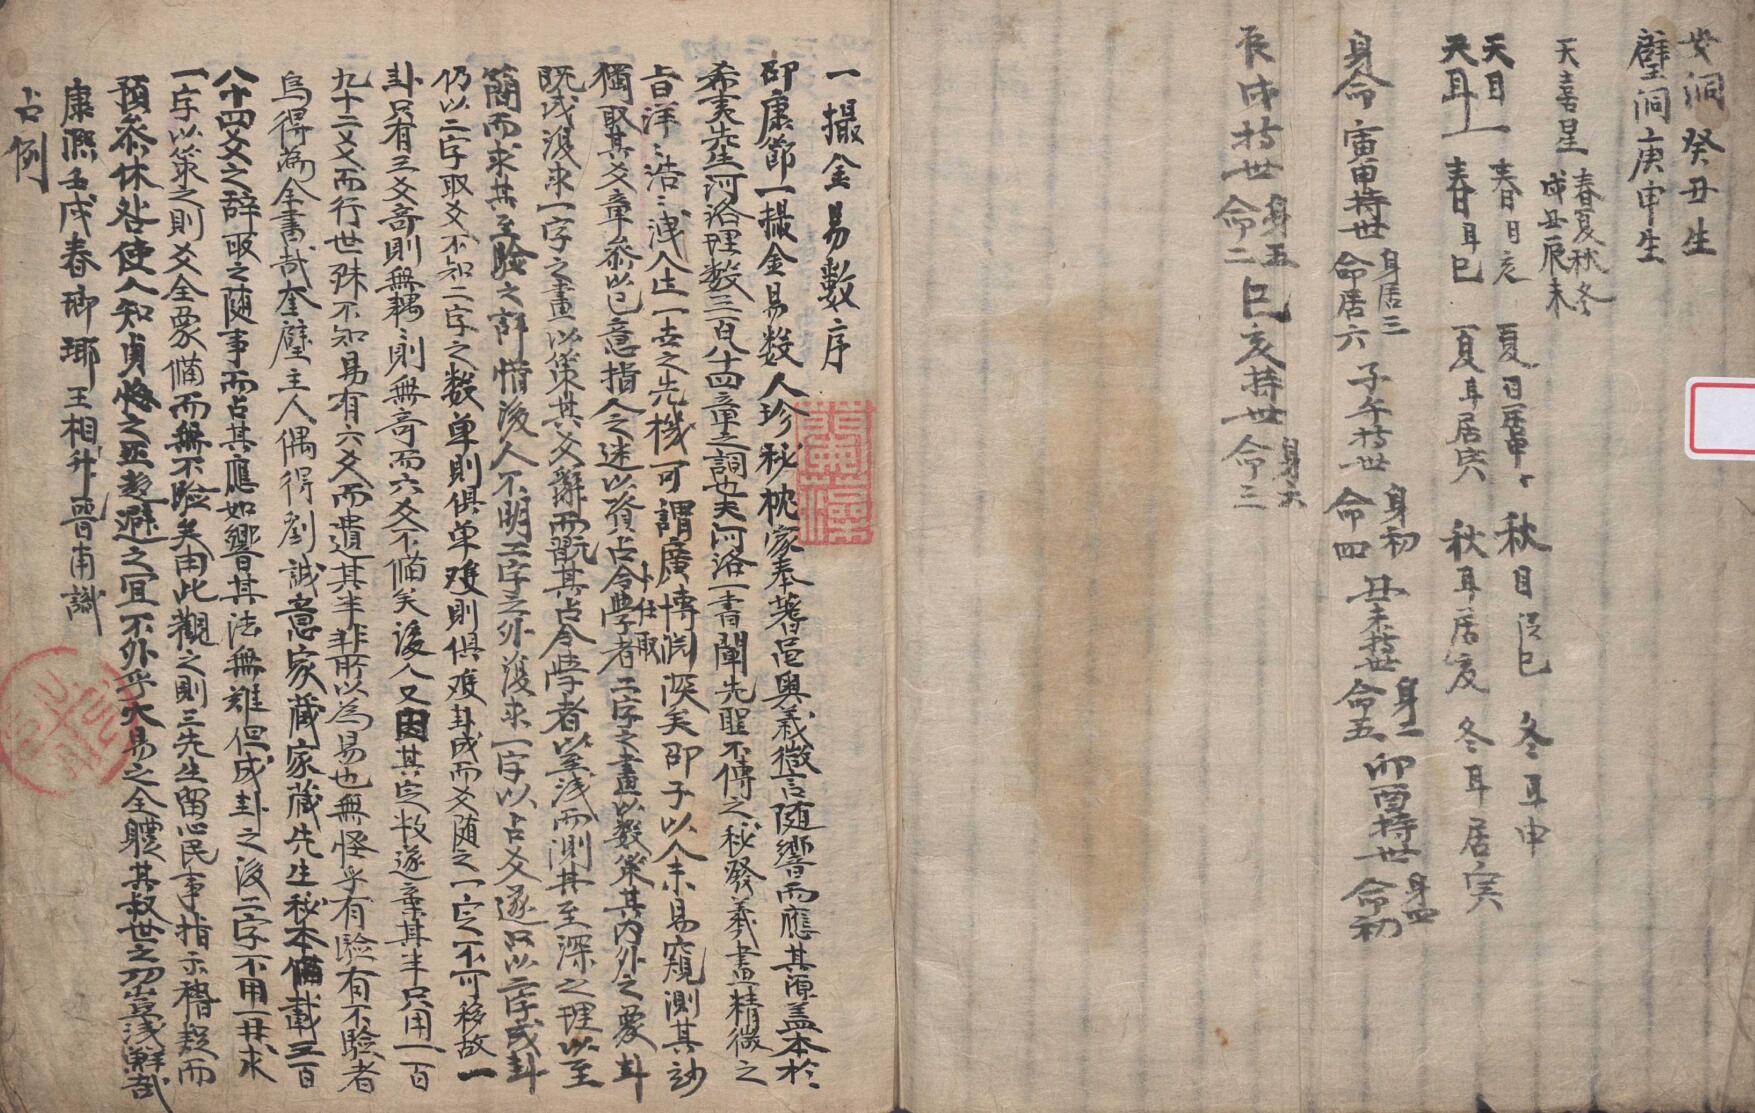 女洞癸丑生
壁洞庚申生
天喜星 春夏秋冬 戌丑辰未
天目 春目亥 夏目居申 秋目 巳 冬耳申
天耳 春耳巳 夏耳居 秋耳居亥 冬耳居寅
身命 寅申持世 身居三 命居六 子午持世 身初 命四 丑未持世 身二 命五 卯酉持世 身四 命初
辰戌持世 身五 命二 巳亥持世 身六 命三
一撮金易數序
邵康節一撮金易数人珍秘枕家奉蓍 奧義微言随響而應其源盖本於
希夷先生河洛理数三百八十四章之詞也夫河洛一書闡先聖不傳之秘發羲畫精微之
旨洋洋浩浩洩人生一世之先機可謂廣博淵深矣邵子以人未易窺測其妙
獨取其爻章叅以已意指人之迷以資占卜任取令學者二字之畫以数策其内外之爻卦
既成復求一字之畫以策其爻辭而 其占令學者以至浅而測其至深之理以至
簡而求其至驗之辞惜後人不明二字之外復求一字以占爻遂只以二字成卦
仍以二字取爻不知二字之数单則俱单双則俱双卦成而爻随之一定不可移故一
卦只有三爻奇則無耦耦則無奇而六爻不備矣後人又因其定数遂棄其半只用一百
九十二爻而行世殊不知易有六爻而遺其半非所以為易也無怪乎有驗有不驗者
烏得為全書哉奎壁主人偶得劉誠意家藏家藏先生秘本備載三百
八十四爻之辞取之随事而占其應如響其法無難但成卦之後二字不用再求
一字以策之則爻全象備而無不驗矣由此觀之則三先生留心民事指示稽疑而
預叅休咎使人知貞悔之 趨避之宜不外乎大易之全體其救世之功豈浅鮮哉
康熙壬戌春瑯琊王相升晋甫識
占例